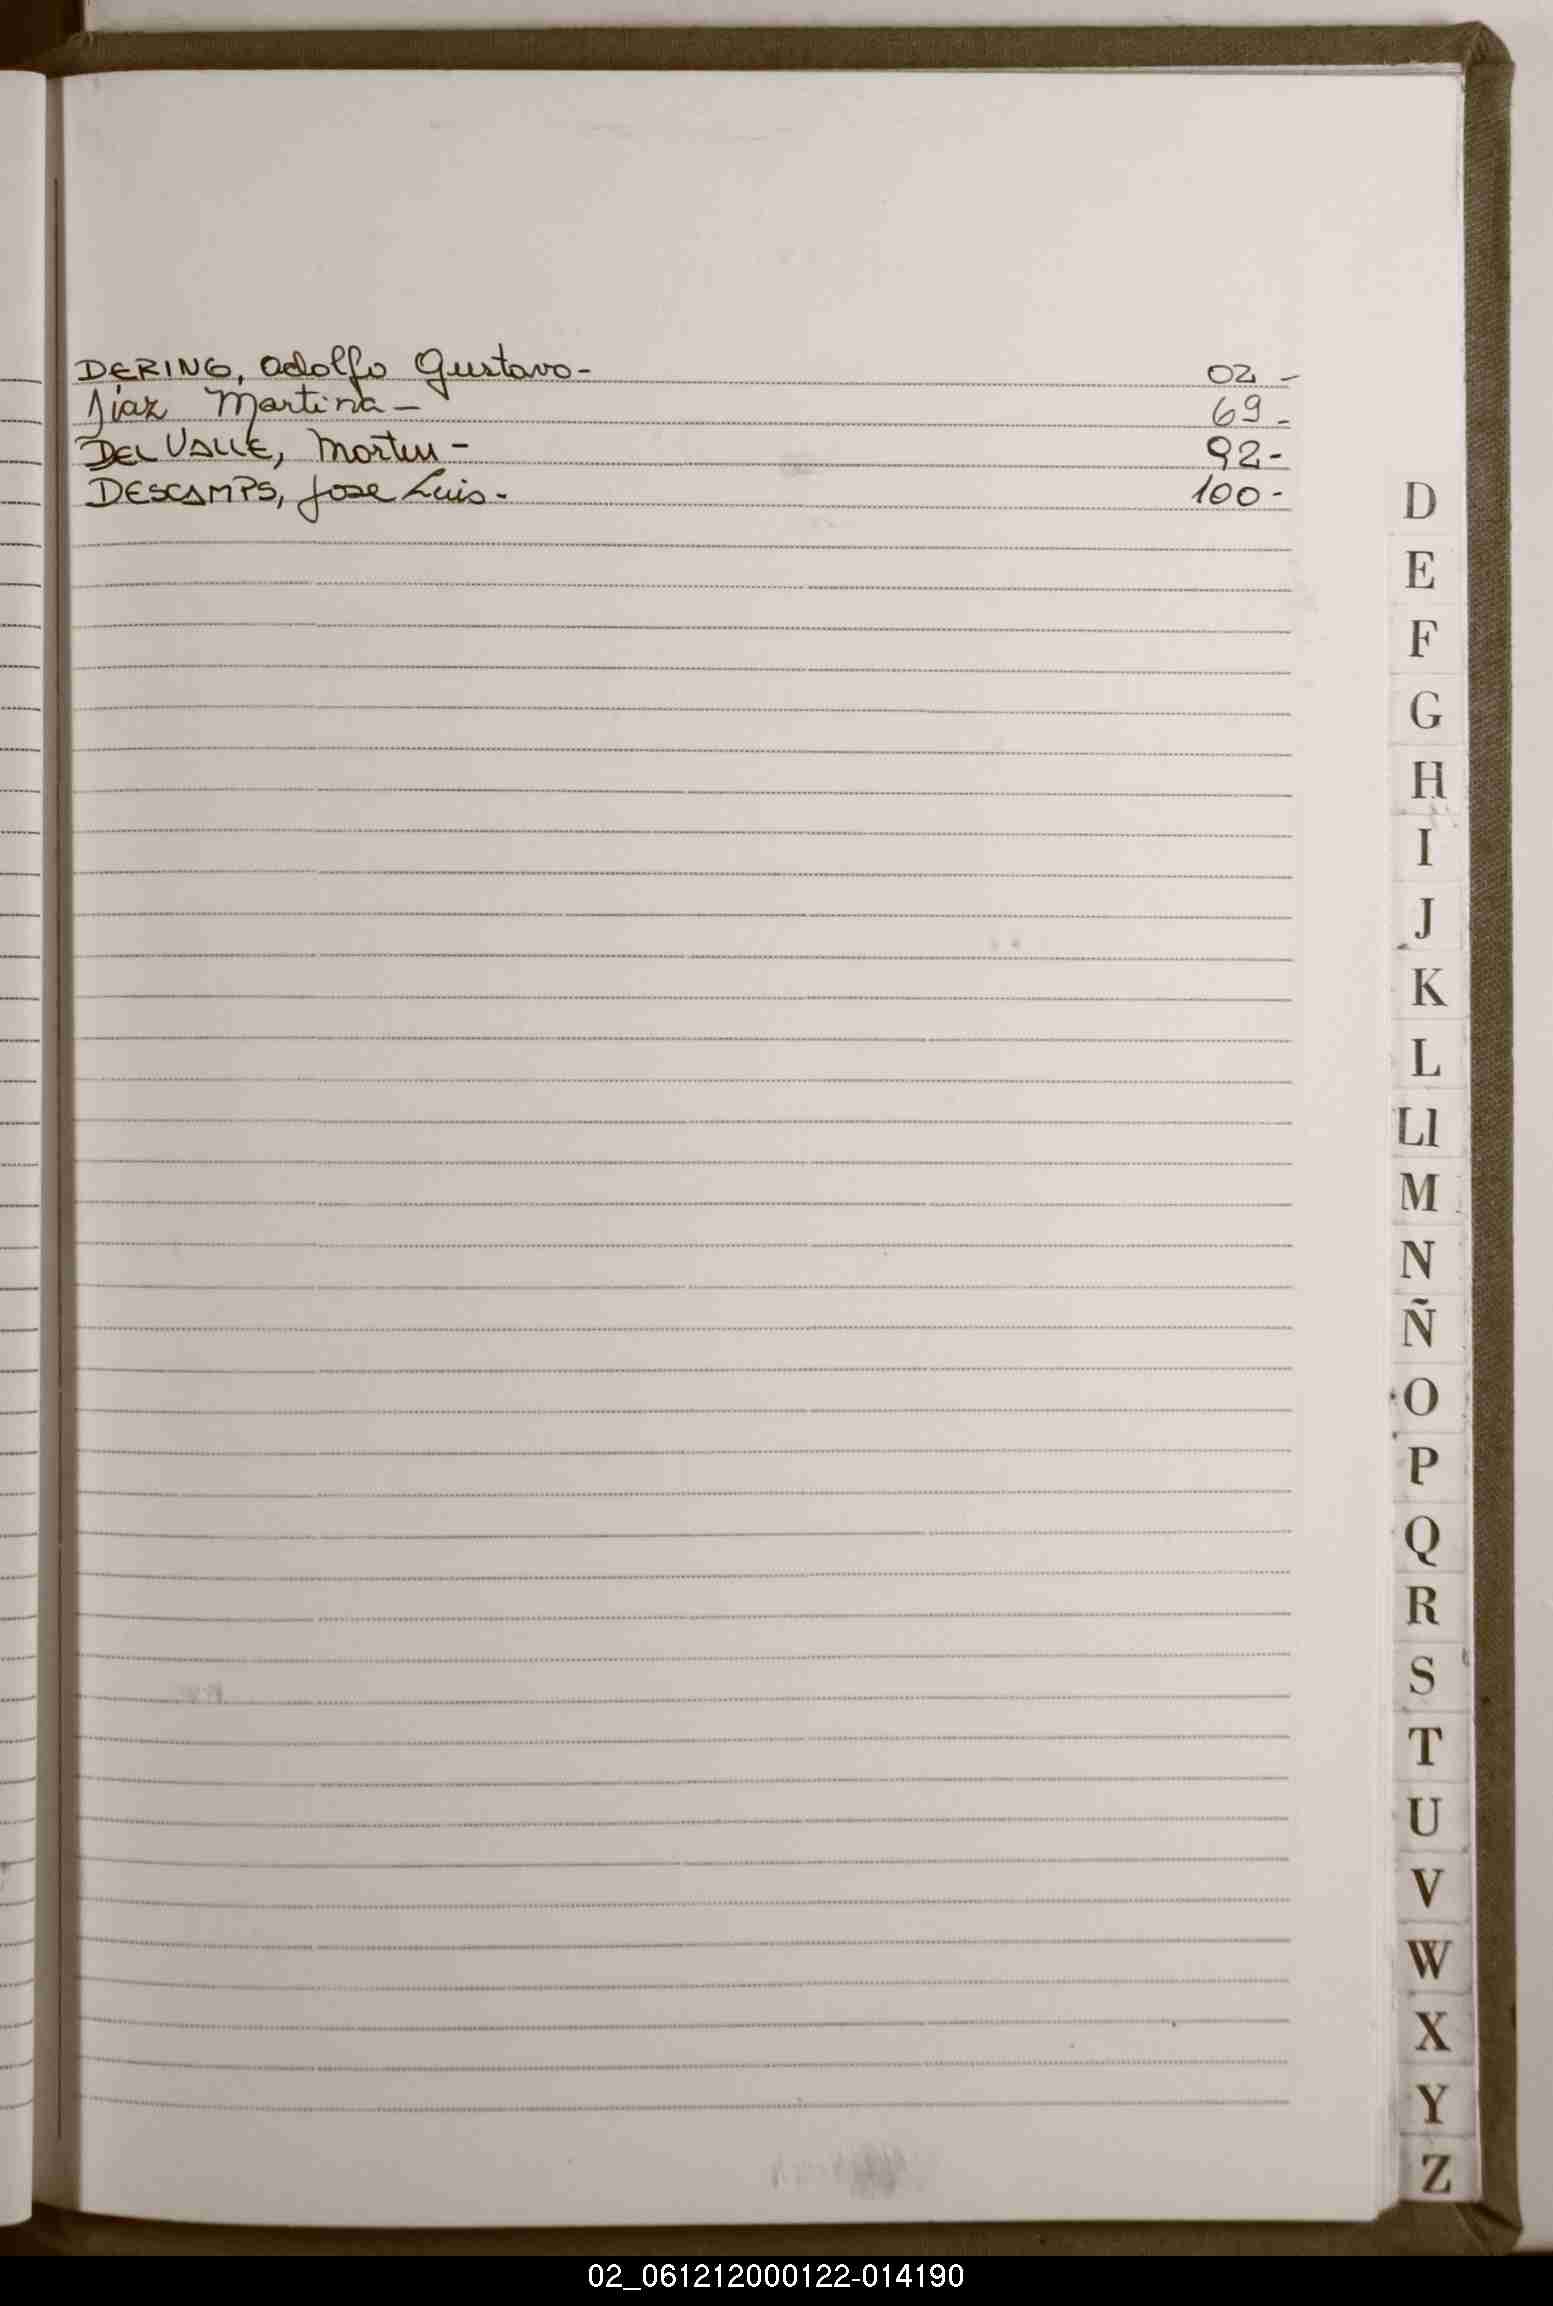 DERING, Adolfo Gustavo- 02 -
Diaz Martina - 69 -
DEL VALLE, Martin - 92 -
DESCAMPS, Jose Luis - 100 -
D
E
F
G
H
I
J
K
L
Ll
M
N
Ñ
O
P
Q
R
S
T
U
V
W
X
Y
Z
02_061212000122-014190